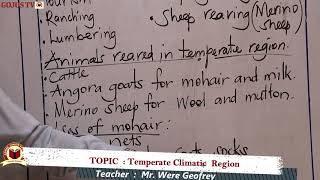 GOJES TV
Tourism
Ranching
Lumbering
• Sheep rearing (Merino
sheep)
Animals reared in temperate region.
• Cattle
• Angora goats for mohair and milk.
• Merino sheep for wool and mutton.
Uses of mohair:
nets
socks
TOPIC : Temperate Climatic Region
Teacher : Mr. Were Geofrey